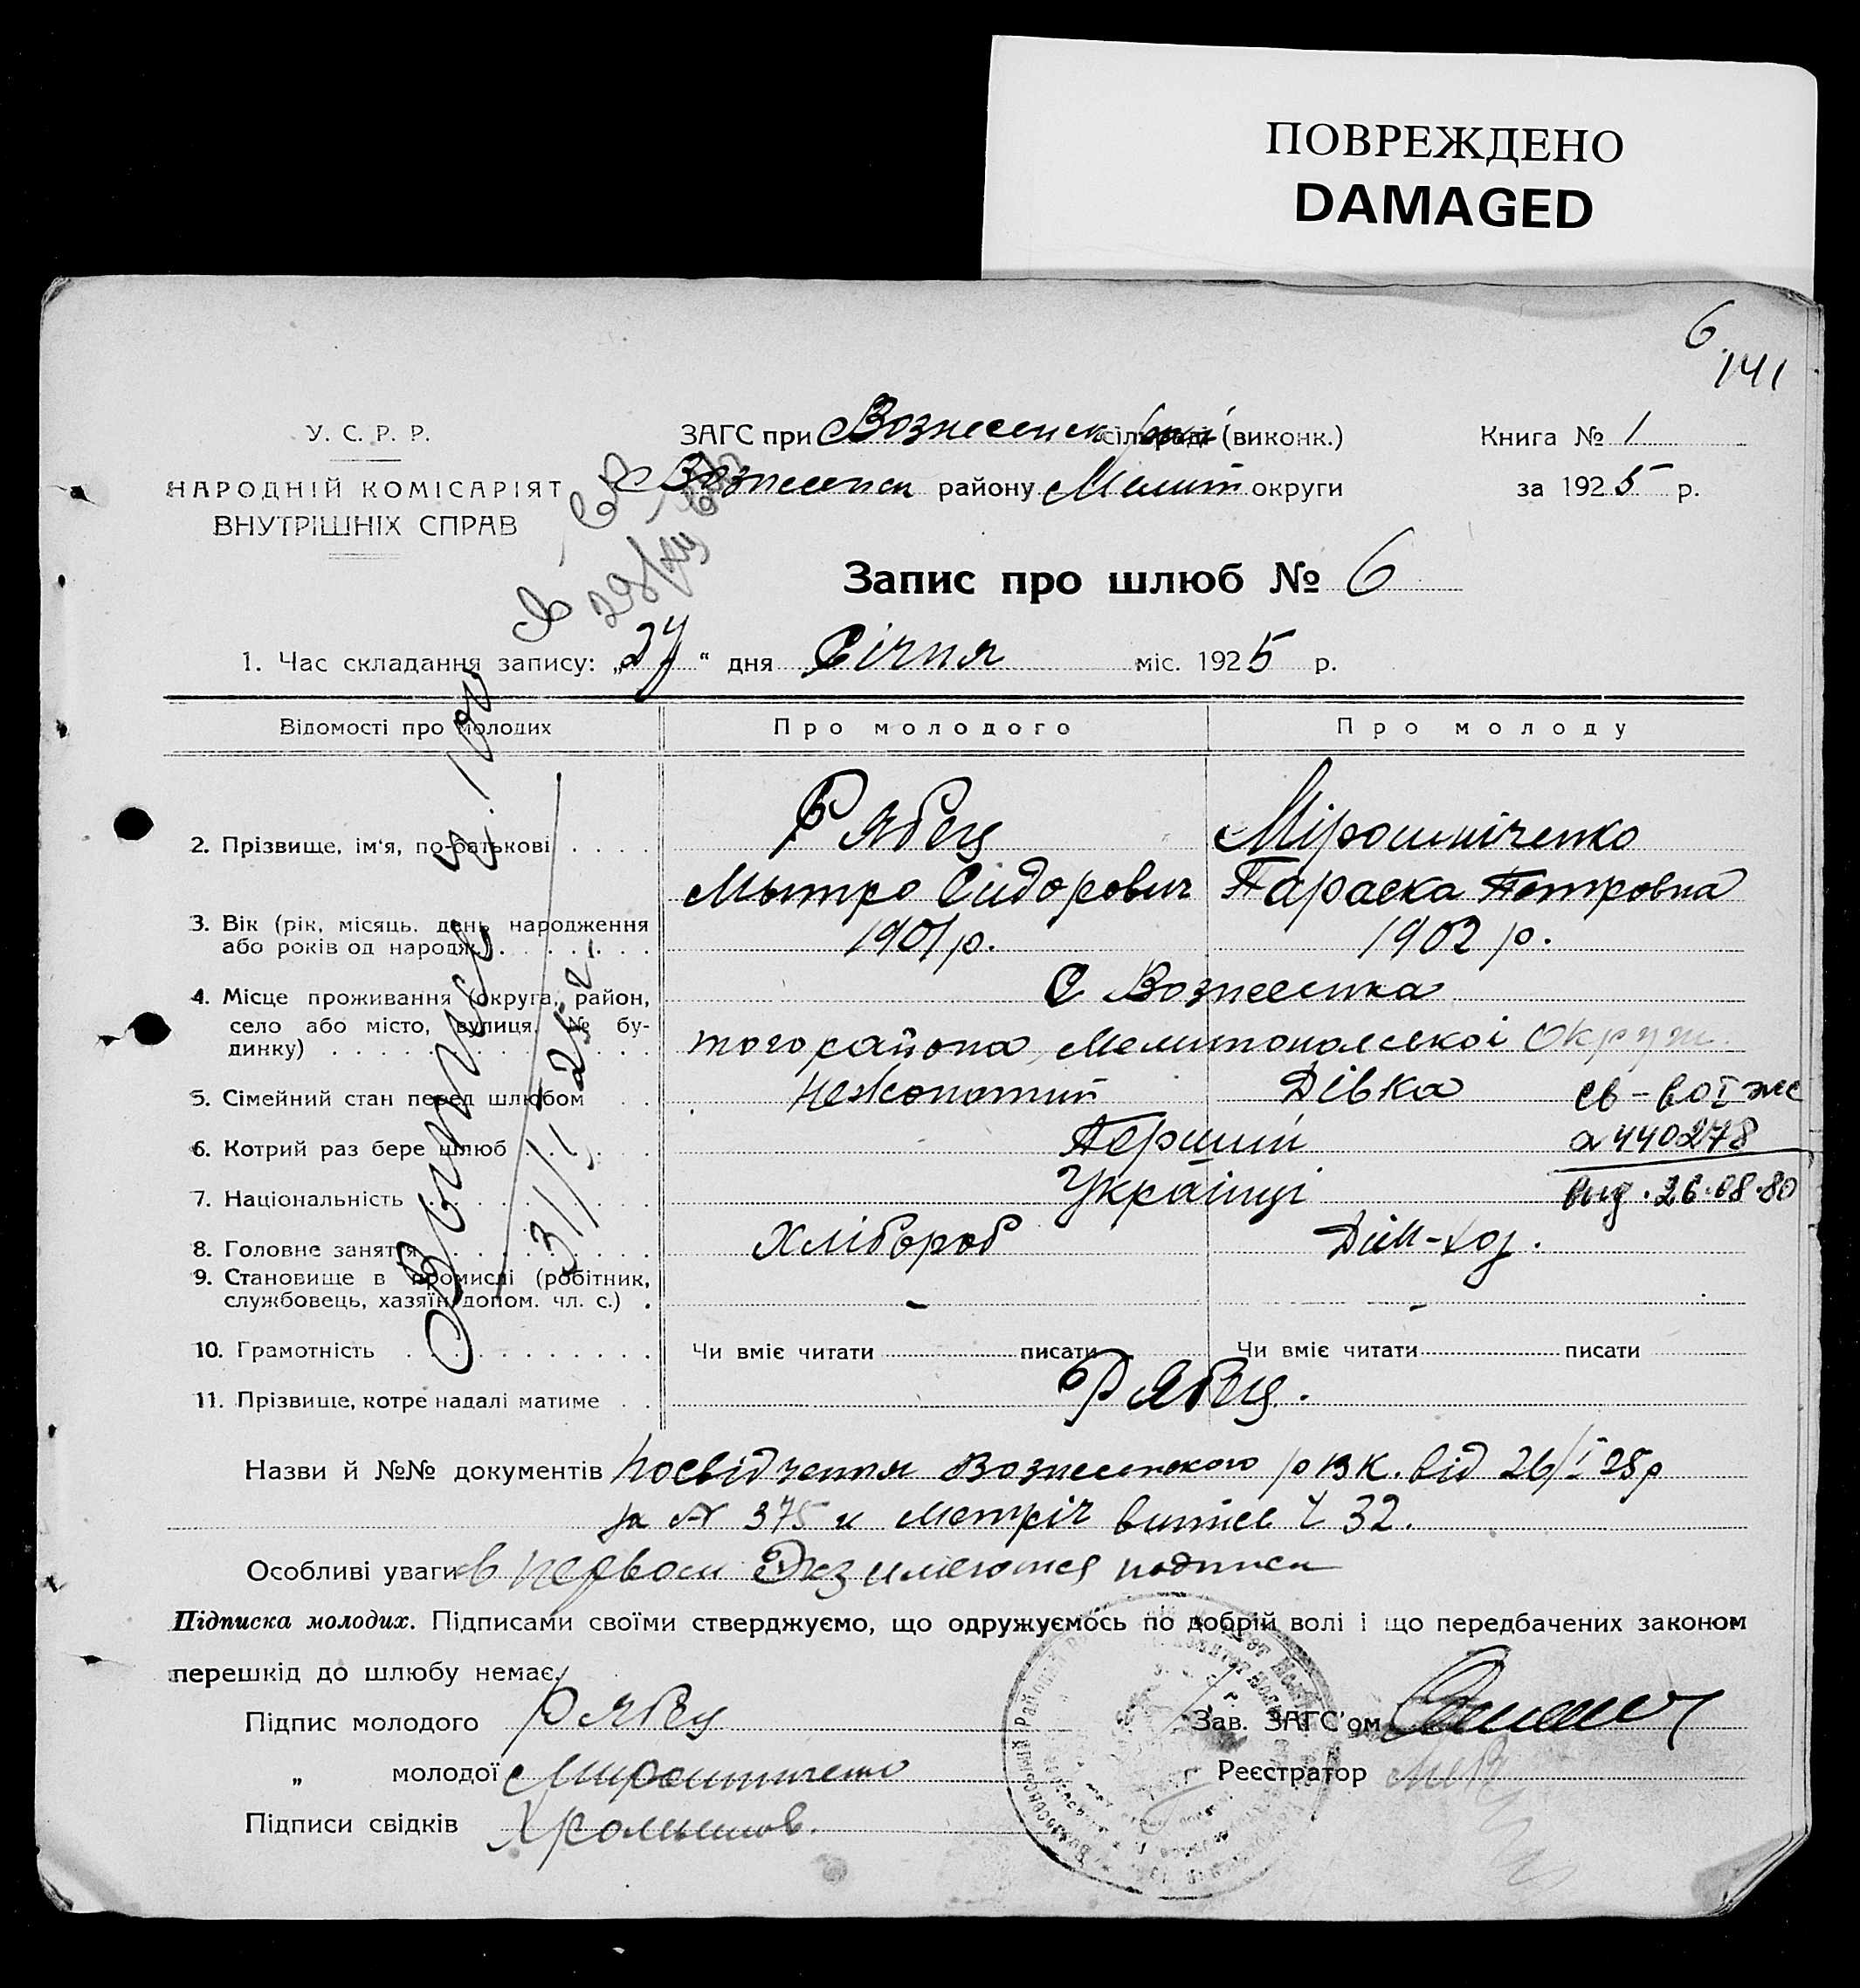 ПОВРЕЖДЕНО
DAMAGED
6
141
У. С. Р. Р.
НАРОДНІЙ КОМІСАРІЯТ
ВНУТРІШНІХ СПРАВ
ЗАГС при Вознесенск сільраді (виконк.)
Вознесенск району Мелит округи
Книга № 1
за 1925 р.
Запис про шлюб № 6
1. Час складання запису: „27“ дня Січня міс. 1925 р.
Відомості про молодих
Про молодого
Про молоду
2. Прізвище, ім'я, по-батькові . . . .
Рябец
Мирошніченко
Мытро Сидорович
Параска Петровна
3. Вік (рік, місяць, день народження
або років од народж.) . . . . . . .
1901 р.
1902 р.
4. Місце проживання (округа, район,
село або місто, вулиця, № бу-
динку)
С Вознесенка
того района Мелитопольскоі Округи
5. Сімейний стан перед шлюбом . .
Нежонатий
Дівка
6. Котрий раз бере шлюб . . . . .
Перший
7. Національність
Українці
св-во I жс
а 440278
выд. 26.08.80
8. Головне заняття
Хлібороб
Дом-хоз.
9. Становище в промислі (робітник,
службовець, хазяїн, допом. чл. с.) .
-
-
10. Грамотність
Чи вміє читати писати
Чи вміє читати писати
11. Прізвище, котре надалі матиме . .
Рябец.
31/I-25 г.
Назви й №№ документів Посвідчення Вознесенского рвк. від 26/I 25 р
за № 375 и метріч випісь Ч 32.
Особливі уваги в первом Экз имеются подписи
Підписка молодих. Підписами своїми стверджуємо, що одружуємось по добрій волі і що передбачених законом
перешкід до шлюбу немає.
Підпис молодого Рябец
Зав. ЗАГС'ом
„ молодої Мирошниченко
Реєстратор
Підписи свідків